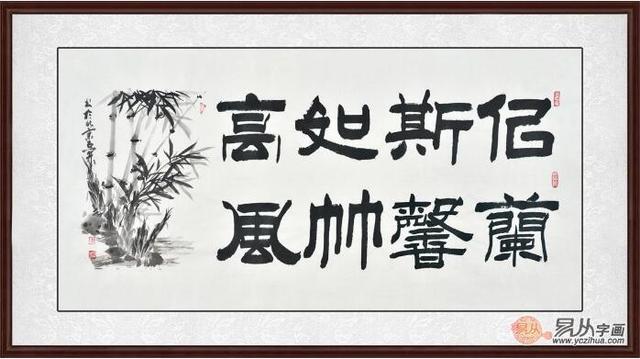 佀蘭
斯馨
如竹
高風
易从字画
www.yczihua.com